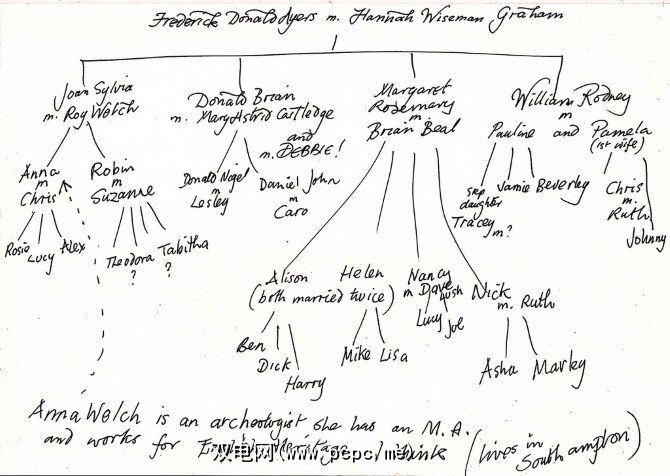 Frederick Donald Ayers m. Hannah Wiseman Graham
Joan Sylvia
m. Roy Welch
Donald Brian
m. Mary Astrid Cattledge
and
m. DEBBIE!
Margaret
Rosemary
m
Brian Beal
William Rodney
m
Pauline and Pamela
(1st wife)
Anna
m
Chris
Robin
m
Suzanne
Donald Nigel
m
Lesley
Daniel John
m
Caro
step
daughter
Tracey
m?
Jamie Beverley
Chris
m.
Ruth
Johnny
Rosie Lucy Alex
Theodora Tabitha
? ?
Alison Helen
(both married twice)
Nancy
m Dave
Lush
Lucy Joe
Nick
m. Ruth
Ben
Dick
Harry
Mike Lisa
Asha Marley
Anna Welch is an archeologist she has an M.A.
and works for I think (lives in
Southampton)
双电网(www.pepc.me)